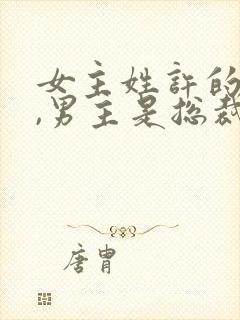 女主姓許的
,男主是总裁
唐胄